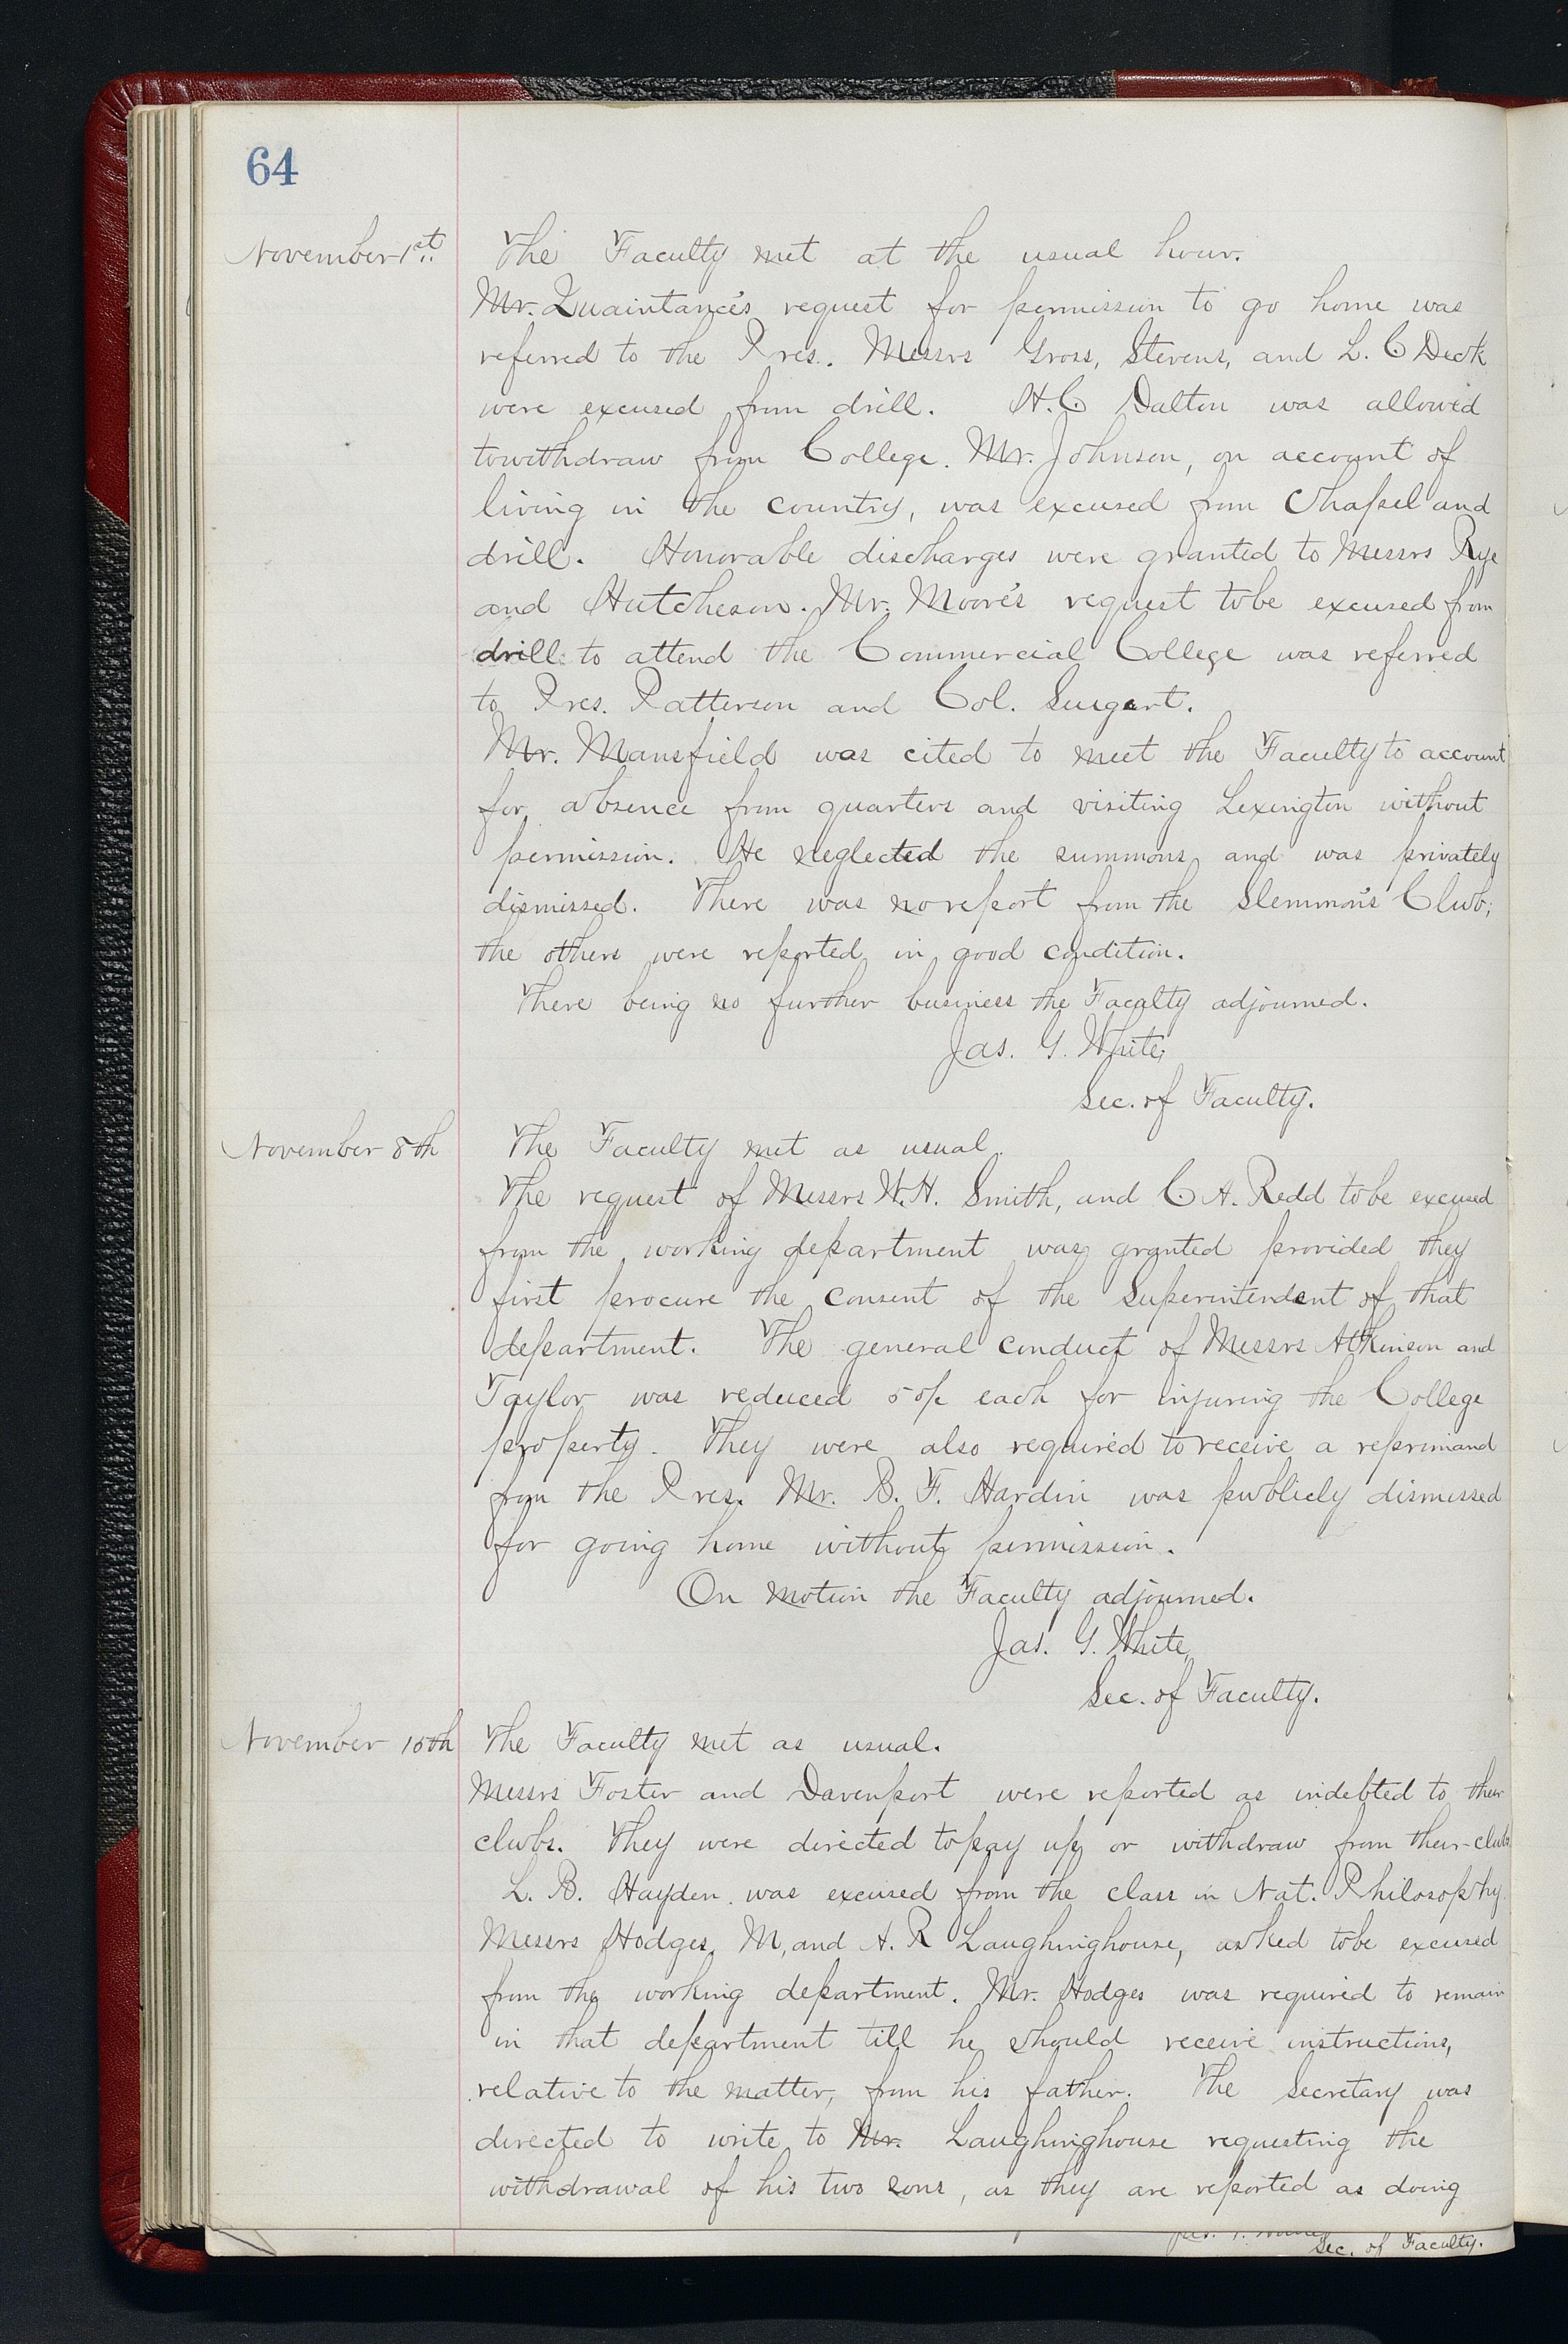 64
November 1st. The Faculty met at the usual hour.
Mr. Quaintance's request for permission to go home was
referred to the Pres. Messrs Gross, Stevens, and L. C Deck
were excused from drill. H. C Dalton was allowed
to withdraw from College. Mr. Johnson, on account of
living in the country, was excused from Chapel and
drill. Honorable discharges were granted to Messrs Rye
and Hutcheson. Mr. Moore's request to be excused from
drill to attend the Commercial College was referred
to Pres. Patterson and Col. Swigert.
Mr. Mansfield was cited to meet the Faculty to account
for absence from quarters and visiting Lexington without
permission. He neglected the summons, and was privately
dismissed. There was no report from the Slemmon's Club;
the others were reported in good condition.
There being no further business the Faculty adjourned.
Jas. G. White,
Sec. of Faculty.
November 8th The Faculty met as usual.
The request of Messrs W. H. Smith, and C A. Redd to be excused
from the working department was granted provided they
first procure the consent of the Superintendent of that
department. The general conduct of Messrs Atkinson and
Taylor was reduced 5% each for injuring the College
property. They were also required to receive a reprimand
from the Pres. Mr. B. F. Hardin was publicly dismissed
for going home without permission.
On motion the Faculty adjourned.
Jas. G. White,
Sec. of Faculty.
November 15th The Faculty met as usual.
Messrs Foster and Davenport were reported as indebted to their
clubs. They were directed to pay up or withdraw from their clubs
L. B. Hayden was excused from the class in Nat. Philosophy.
Messrs Hodges, M, and A. R Laughinghouse, asked to be excused
from the working department. Mr. Hodges was required to remain
in that department till he should receive instructions,
relative to the matter, from his father. The Secretary was
directed to write to Mr. Laughinghouse requesting the
withdrawal of his two sons, as they are reported as doing
Sec. of Faculty.